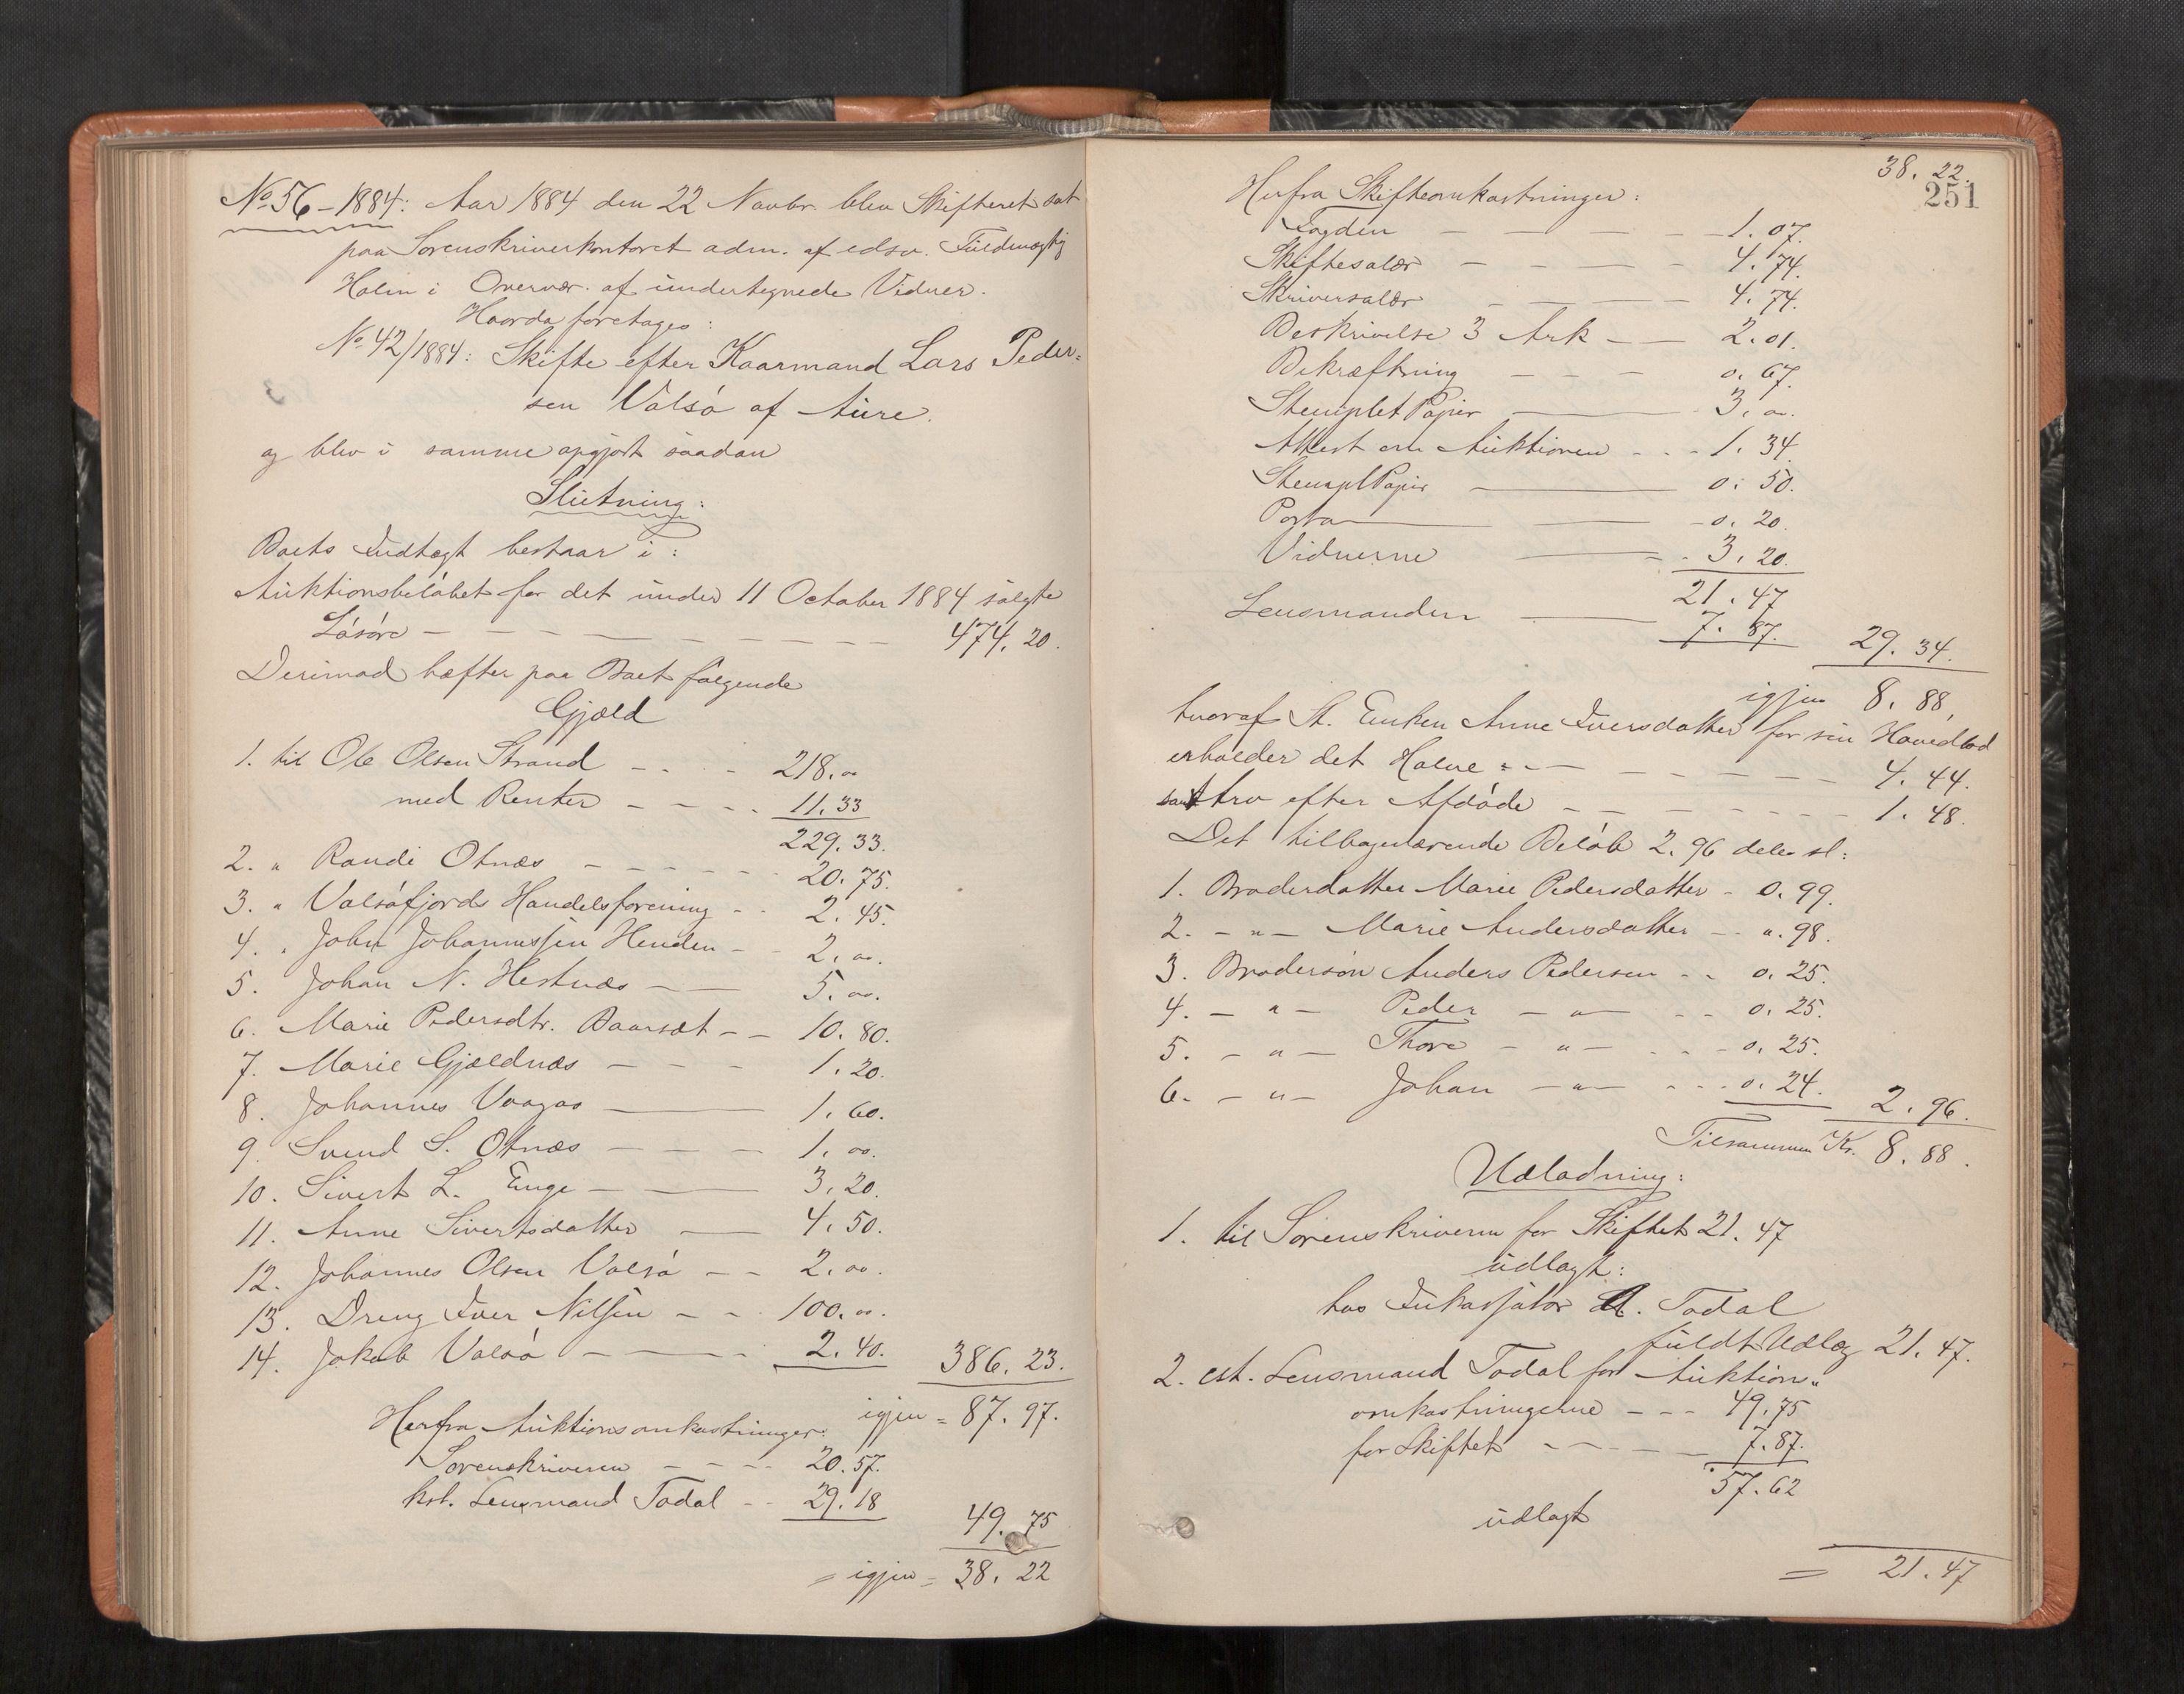 No 56 - 1884: Aar 1884 den 22 Novbr. blev Skifteret sat
paa Sorenskriverkontoret adm. af edsv. Fuldmægtig
Holm i Overvær. af undertegnede Vidner.
Hvorda foretages:
No 42/1884: Skifte efter Kaarmand Lars Peder-
sen Valsö af Aure.
og blev i samme opgjort saadan
Slutning:
Boets Indtægt bestaar i:
Auktionsbelöbet for det under 11 October 1884 solgte
Lösöre - - - - - - - - 474. 20.
Derimod hæfter paa Boet fölgende
Gjæld
1. til Ole Olsen Strand - - - 218. 00
med Renter - - - - 11. 33
229. 33.
2. " Randi Otnæs - - - - 20. 75.
3. " Valsöfjords Handelsforening - - 2. 45.
4. " John Johannessen Henden - - 2. 00.
5. Johan N. Hestnæs - - 5. 00.
6. Marie Pedersdtr. Baarsæt - - 10. 80.
7. Marie Gjældnæs - - - 1. 20.
8. Johannes Vaagas - - 1. 60.
9. Svend S. Otnæs - - - 1. 00.
10. Sivert L. Enge - - 3. 20.
11. Anne Sivertsdatter - 4. 50.
12. Johannes Olsen Valsö - - 2. 00.
13. Dreng Iver Nilsen - - 100. 00.
14. Jakob Valsö - - - 2. 40. 386. 23.
igjen = 87. 97.
Herfra Auktionsomkostninger:
Sorenskriveren - - - - 20. 57.
kst. Lensmand Todal - - 29. 18
49. 75
= igjen = 38. 22
38. 22.
251
Herfra Skifteomkostninger:
Fogden - - - - 1. 07.
Skiftesalær - - - - 4. 74.
Skriversalær - - - 4. 74.
Beskrivelse 3 Ark - - 2. 01.
Bekræftning - - - 0. 67.
Stemplet Papir - 3. 00.
Attest om Auktionen - - - 1. 34.
StemplPapir - 0. 50.
Porto - - 0. 20.
Vidnerne - - 3. 20.
21. 47
Lensmanden - 7. 87. 29. 34.
igjen 8. 88,
hvoraf Enken Anne Iversdatter for sin Hovedlod
erholder det Halve - - - - - - 4. 44.
samt Arv efter Afdöde - - - - - - 1. 48.
Det tilbageværende Belöb 2. 96 deles sl:
1. Broderdatter Marie Pedersdatter - 0. 99.
2. - " - Marie Andersdatter - - ". 98.
3. Brodersön Anders Pedersen - - 0. 25.
4. - " - Peder - " - - - 0. 25.
5. - " - Thore - " - - - - 0. 25.
6. - " - Johan - " - - - - 0. 24. 2. 96.
Tilsammen Kr. 8. 88.
Udlodning:
1. til Sorenskriveren for Skiftet 21. 47
udlagt:
hos Inkassator A. Todal
fuldt Udlæg 21. 47.
2. cst. Lensmand Todal for Auktions-
omkostningerne - - - 49. 75
for Skiftet - - - - 7. 87.
57. 62
udlagt
= 21. 47